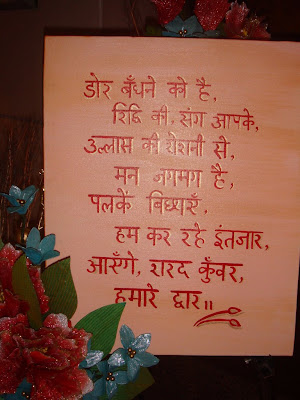 डोर बँधने को है,
रिद्धि की, संग आपके,
उल्लास की रोशनी से,
मन जगमग है,
पलकें बिछाएँ,
हम कर रहे इंतजार,
आएँगे, शरद कुँवर,
हमारे द्वार॥